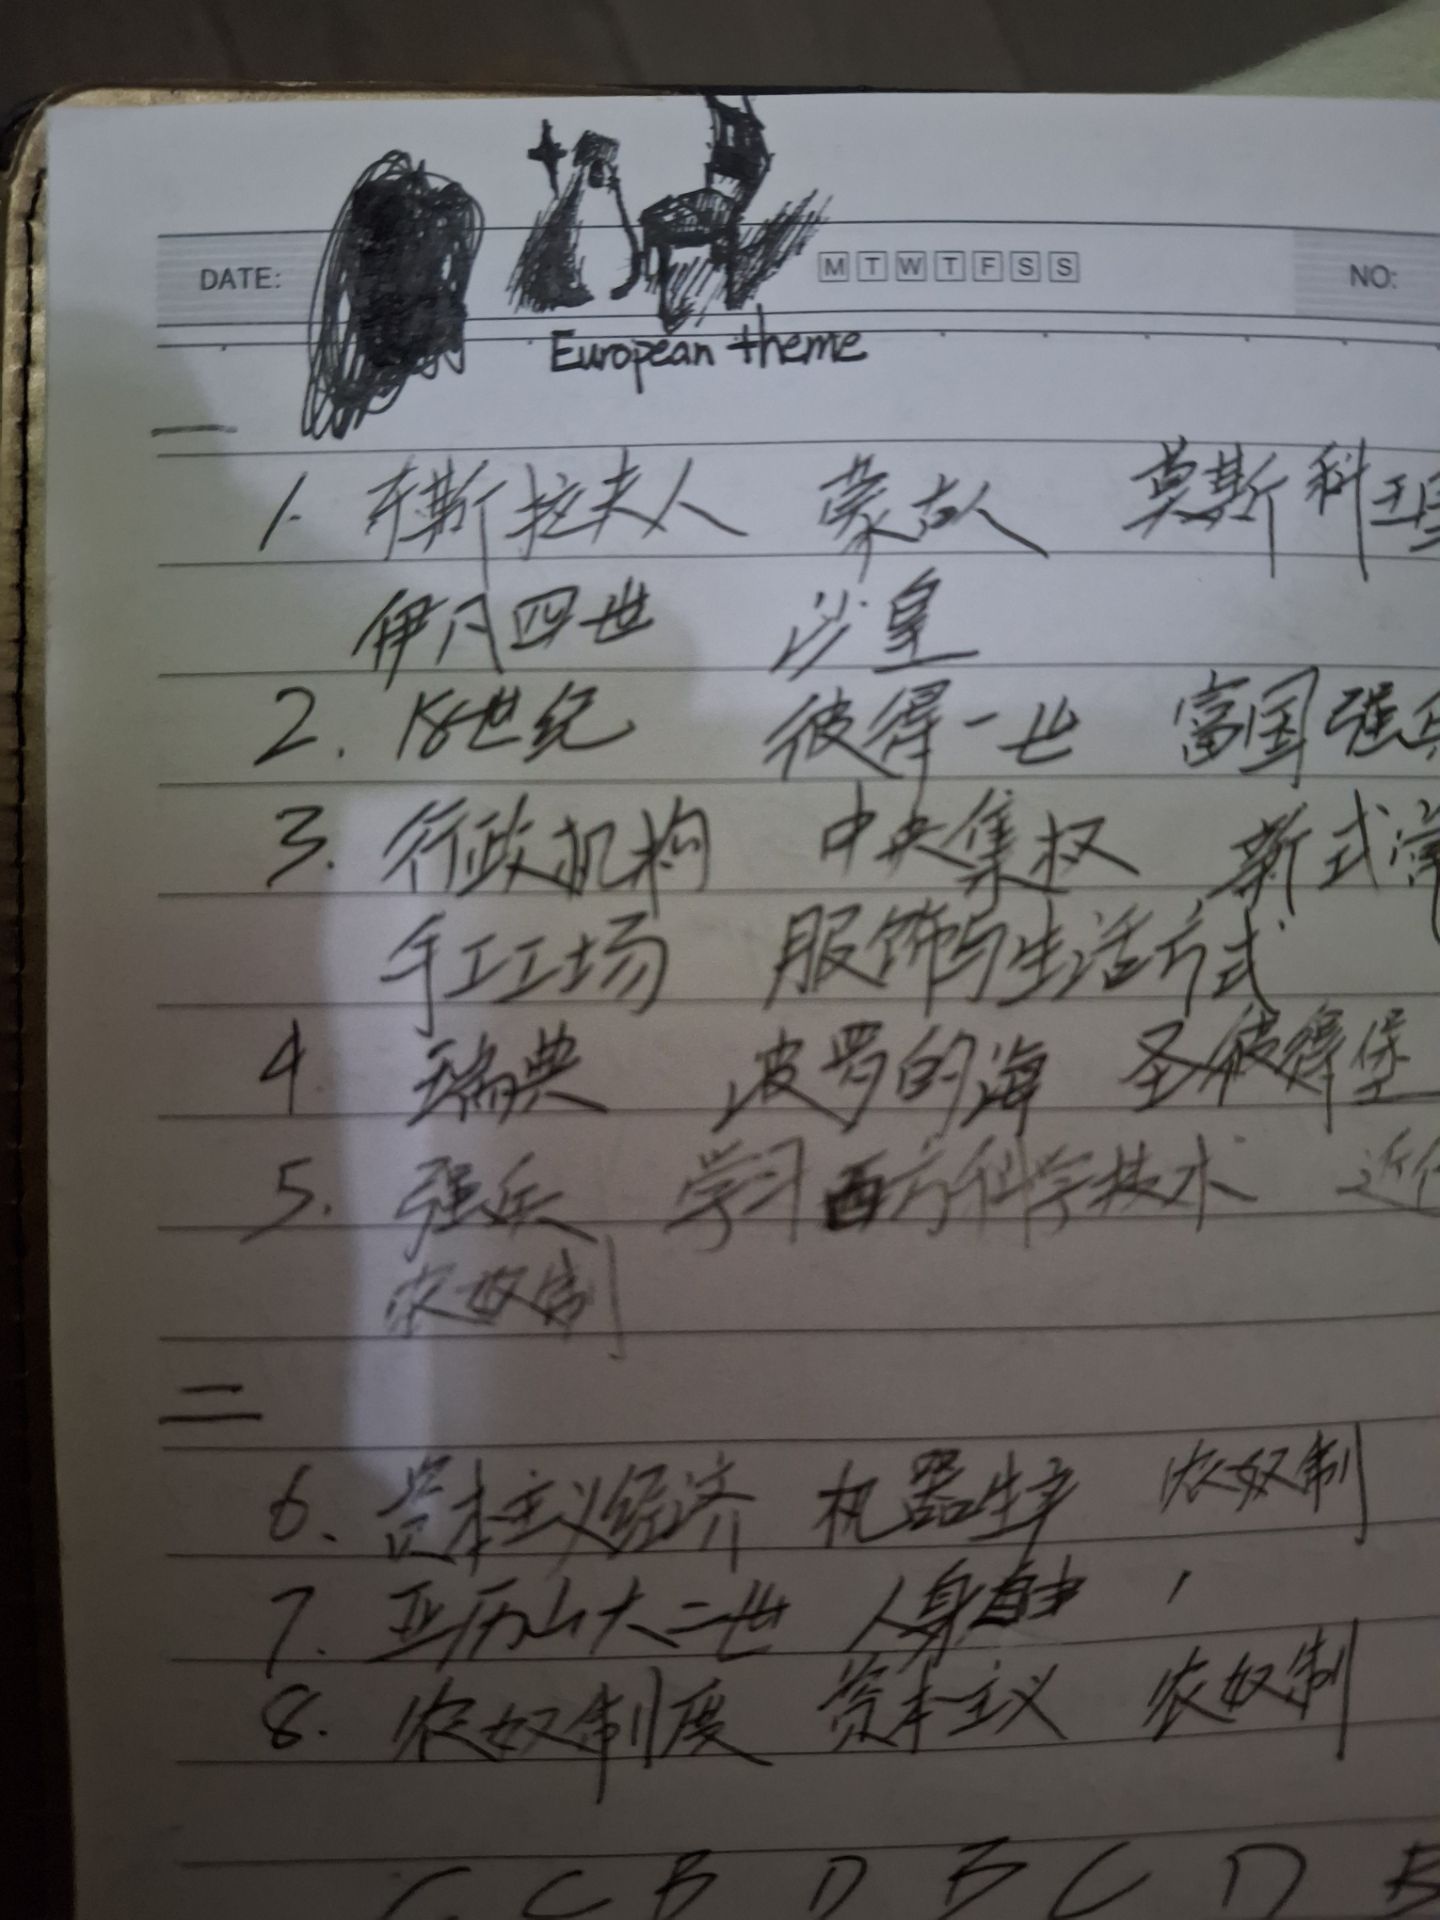 DATE: M T W T F S S NO:
European theme
一
1. 东斯拉夫人 蒙古人 莫斯科
伊凡四世 沙皇
2. 18世纪 彼得一世 富国强兵
3. 行政机构 中央集权 新式
手工工场 服饰与生活方式
4 瑞典 波罗的海 圣彼得堡
5. 强兵 学习西方科学技术 近
农奴制
二
6、资本主义经济 机器生产 农奴制
7. 亚历山大二世 人身自由
8. 农奴制度 资本主义 农奴制
C C B D B C D B